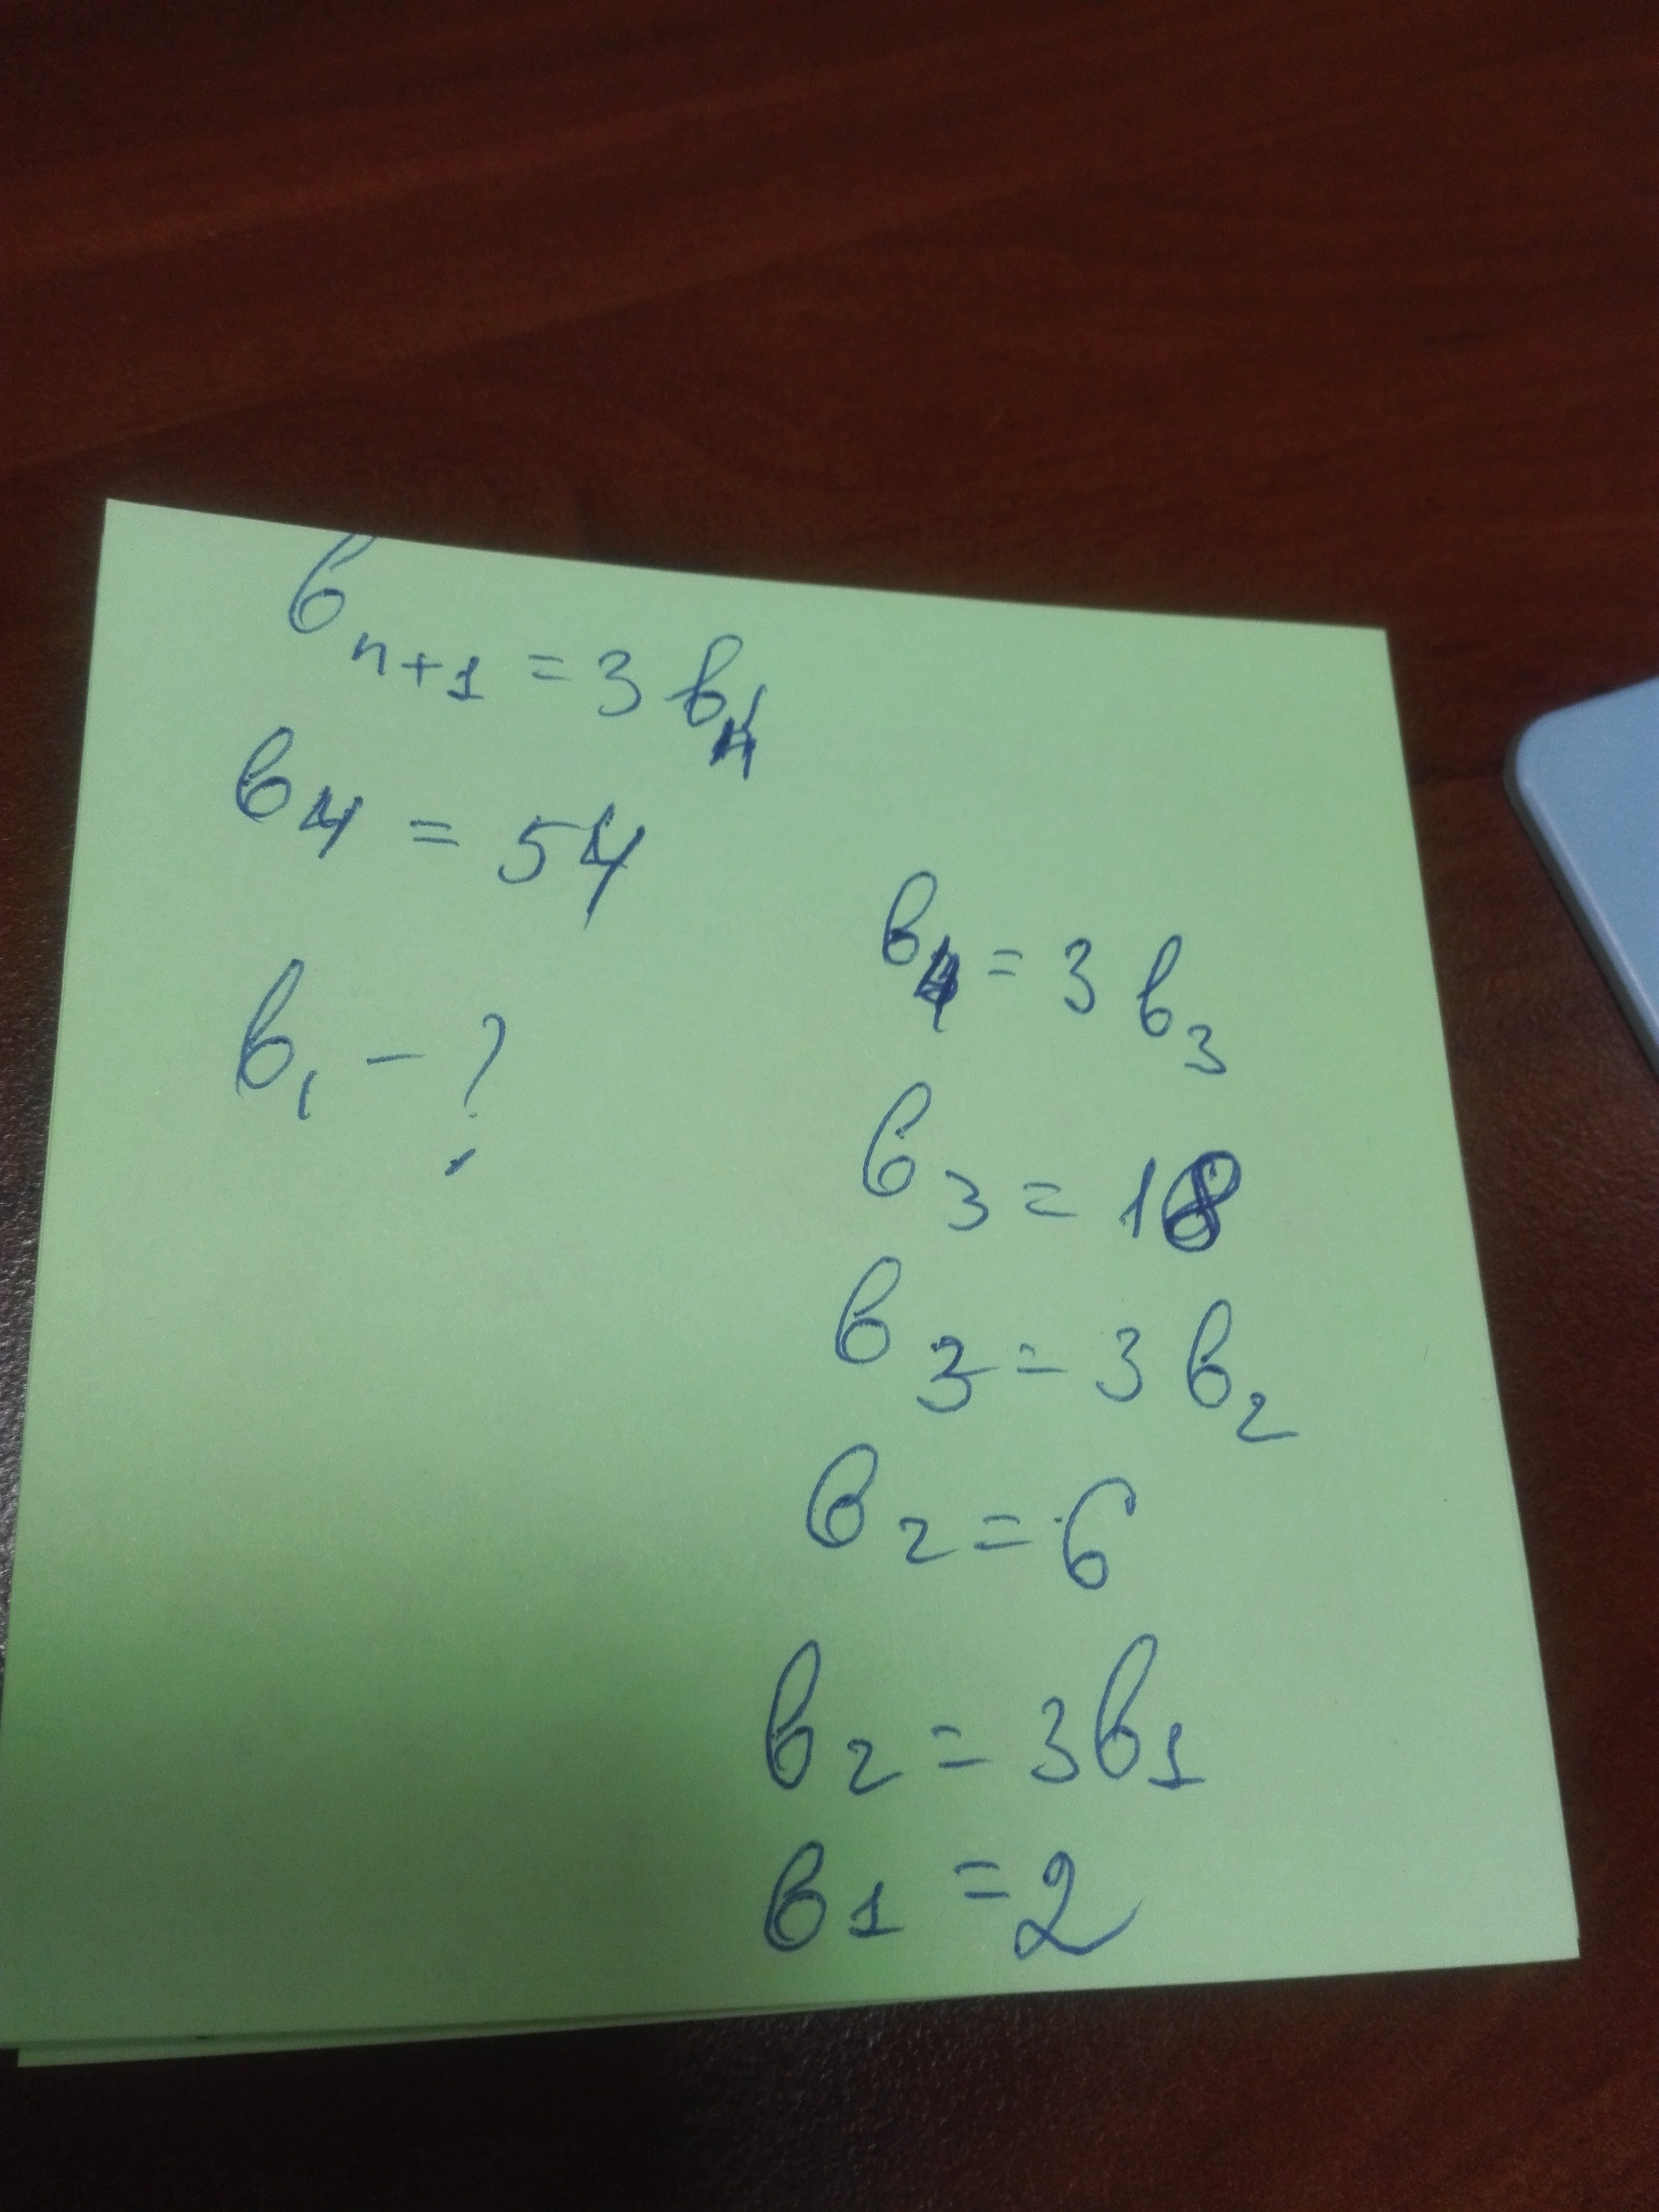 b_{n+1} = 3 b_n
b_4 = 54
b_1 - ?
b_4 = 3 b_3
b_3 = 18
b_3 = 3 b_2
b_2 = 6
b_2 = 3 b_1
b_1 = 2